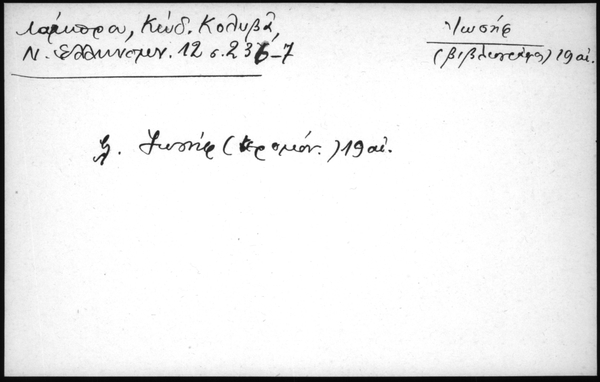 Λάμπρου, Κώδ. Κολυβᾶ,
Ν. Ἑλληνομν. 12 σ. 236-7
Ἰωσήφ
(βιβλιογράφος) 19 αἰ.
Ἰωσήφ (ἱερομόν.) 19 αἰ.